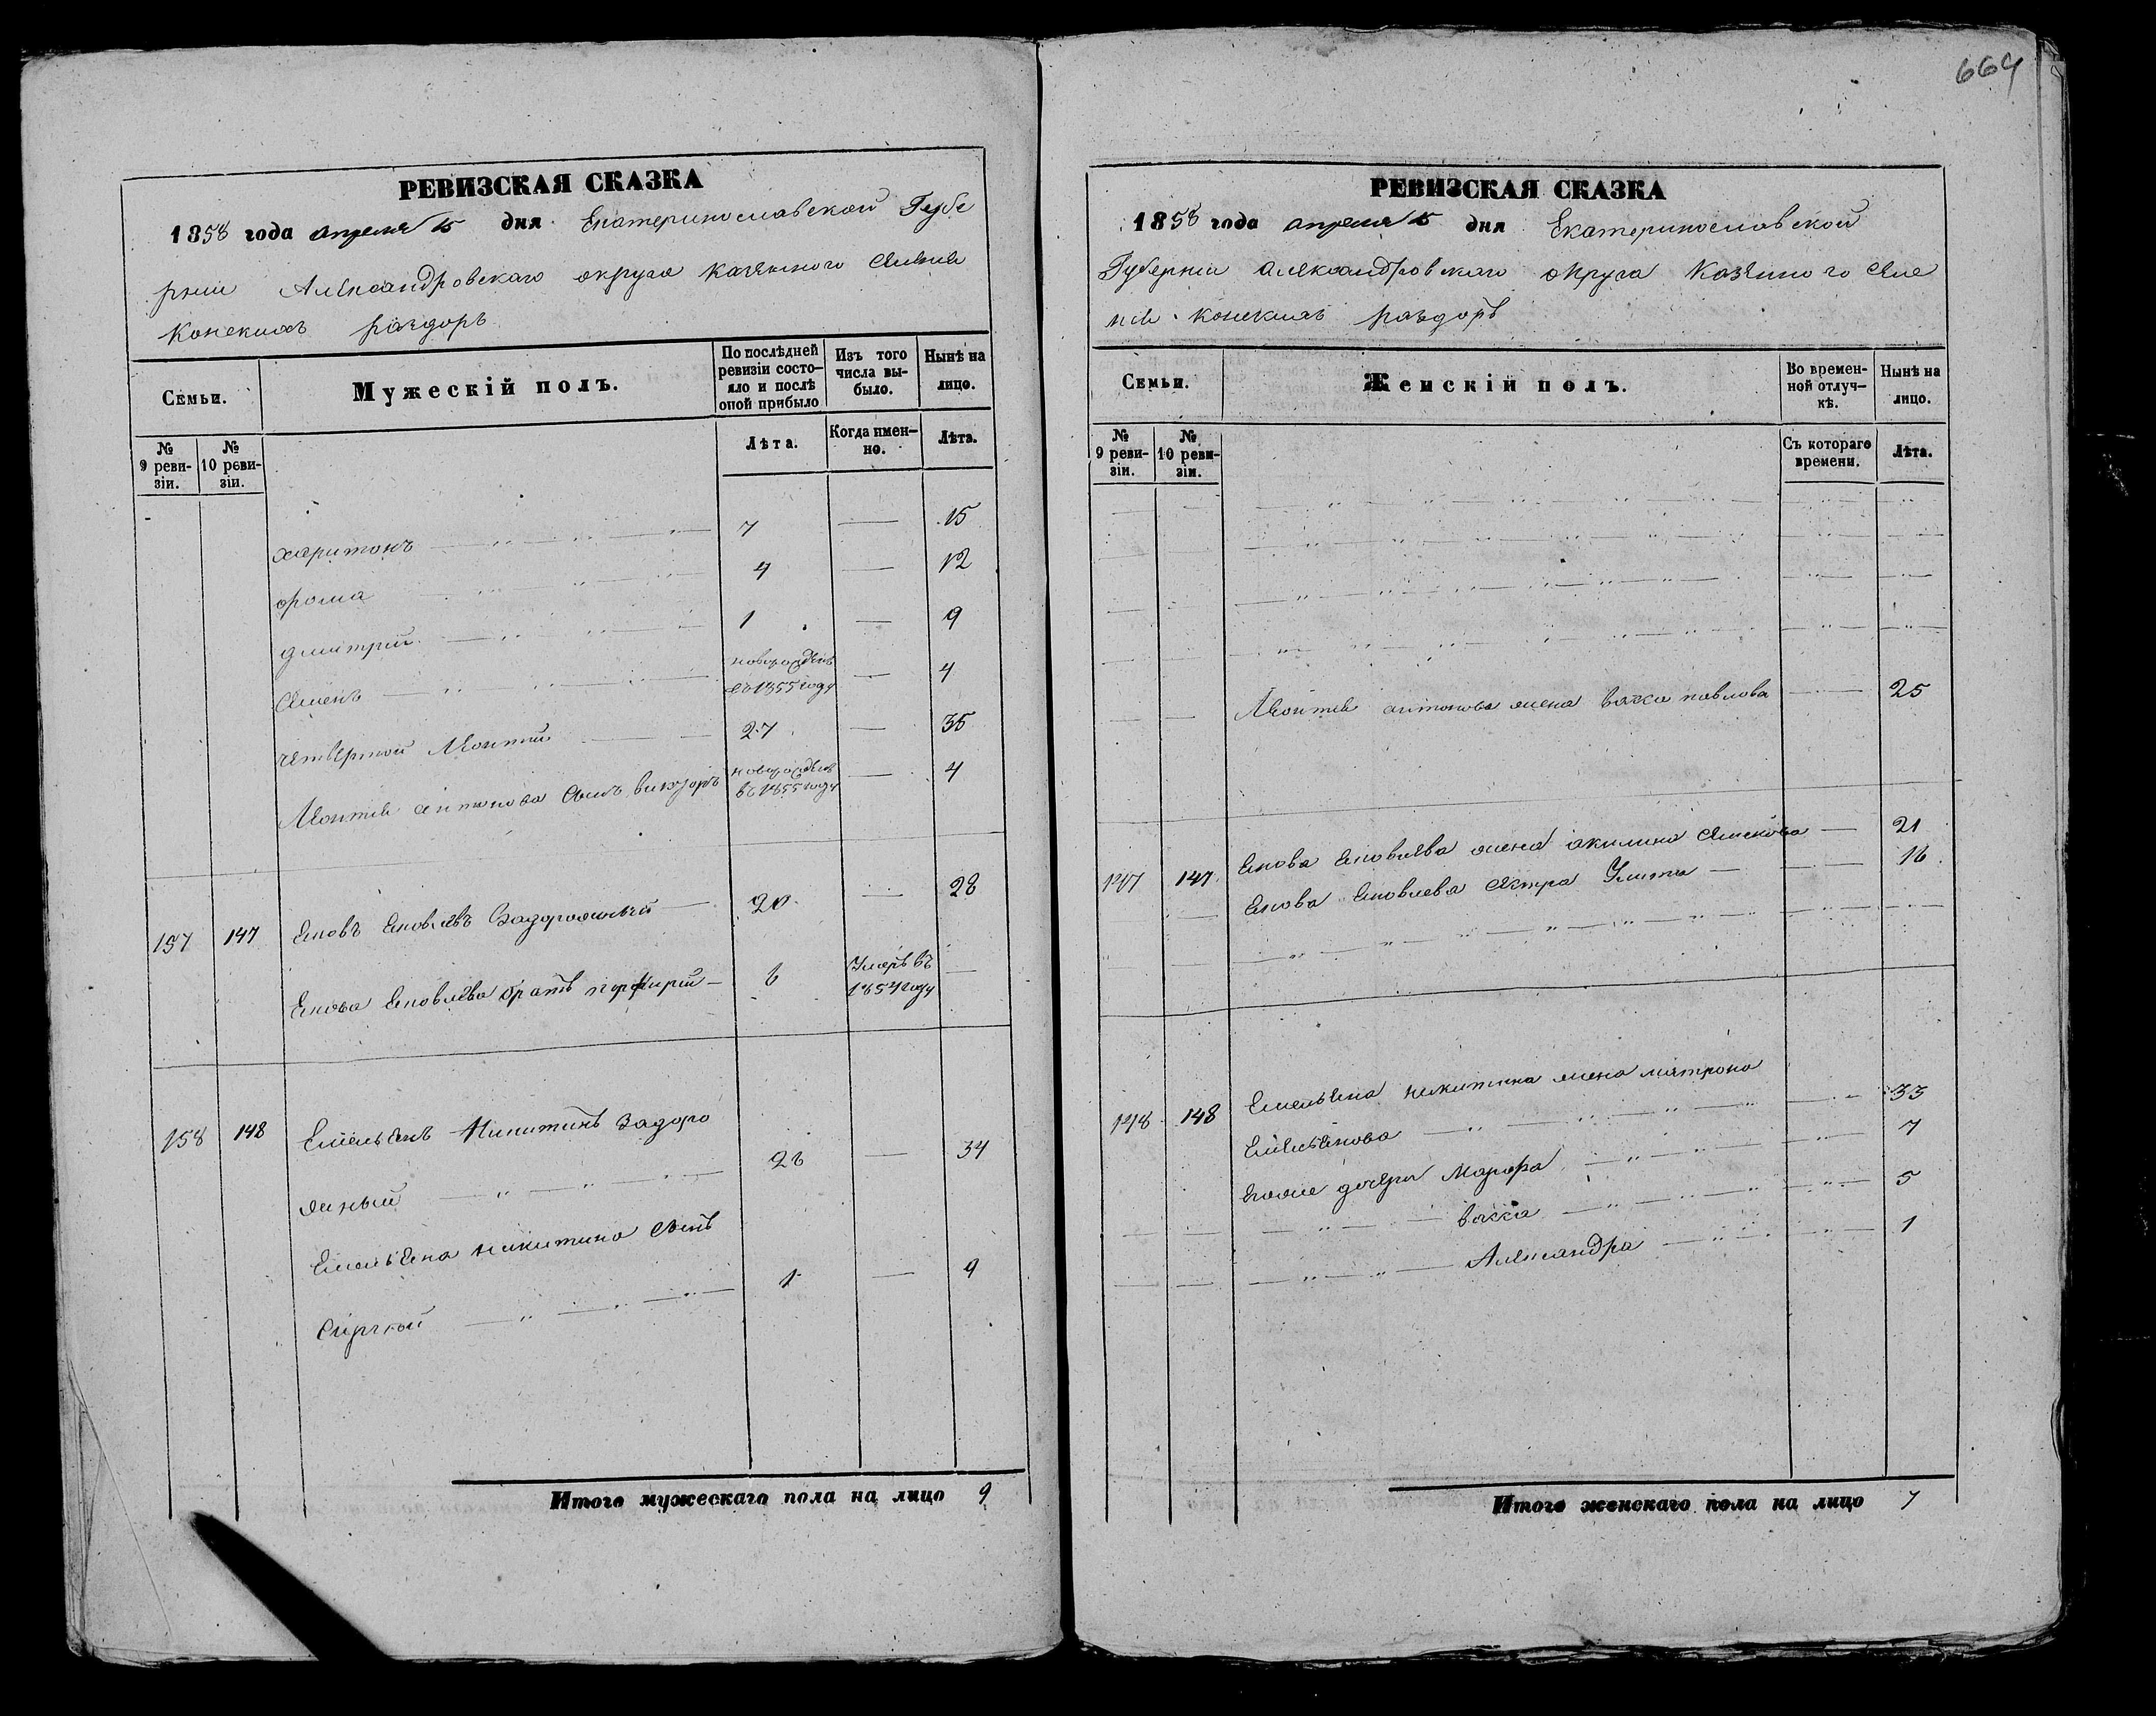 664
РЕВИЗСКАЯ СКАЗКА
1858 года апреля 15 дня Екатеринославской Губе
рнии Александровскаго округа казеннаго селения
Конскихъ раздоръ
Семьи.
Мужескій полъ.
По послѣдней ревизіи состо-
яло и послѣ оной прибыло
Изъ того числа вы-
было.
Нынѣ на лицо.
№ 9 реви-
зіи.
№ 10 реви-
зіи.
Лѣта.
Когда имен-
но.
Лѣта.
харитонъ 7 — 15
фома 4 — 12
дмитрій 1 — 9
Семенъ новорожденъ въ 1855 году — 4
четвертой Леонтій 27 — 35
Леонтія антонова сынъ викторъ новорожденъ въ 1855 году — 4
157 147 Яковъ Яковлевъ Задорожный 20 — 28
Якова Яковлева братъ порфирій 6 Умеръ въ 1854 году —
158 148 Емельянъ Никитинъ Задоро
жный 26 — 34
Емельяна никитина сынъ
1 — 9
Итого мужескаго пола на лицо 9
РЕВИЗСКАЯ СКАЗКА
1858 года апреля 15 дня Екатеринославской
Губерніи александровскаго округа Казеннаго селе
нія Конскихъ раздоръ
Семьи.
Женскій полъ.
Во времен-
ной отлуч-
кѣ.
Нынѣ на лицо.
№ 9 реви-
зіи.
№ 10 реви-
зіи.
Съ котораго времени.
Лѣта.
Леонтія антонова жена васса павлова — 25
147 147 Якова Яковлева жена акилина Семенова — 21
Якова Яковлева сестра Улита — 16
148 148 Емельяна никитина жена матрона
Емельянова — 33
дочери Марфа 7
васса 5
Александра 1
Итого женскаго пола на лицо 7